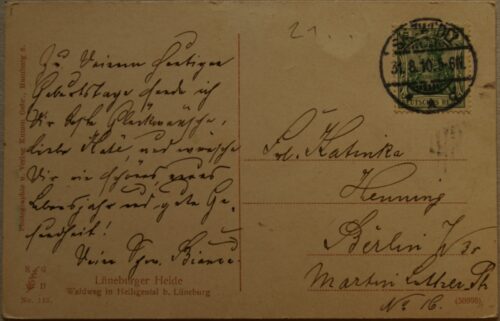 21
Zu Deinem heutigen
Geburtstage sende ich
Dir beste Glückwünsche,
liebe Käte und wünsche
Dir ein schönes neues
Lebensjahr und gute Ge-
sundheit!
Deine Schw.
31.8.10.
Frl. Katinka
Henning
Berlin W 30
Martin Luther St
No 16.
Photographie u. Verlag Hamburg
Lüneburger Heide
Waldweg in Heiligental b. Lüneburg